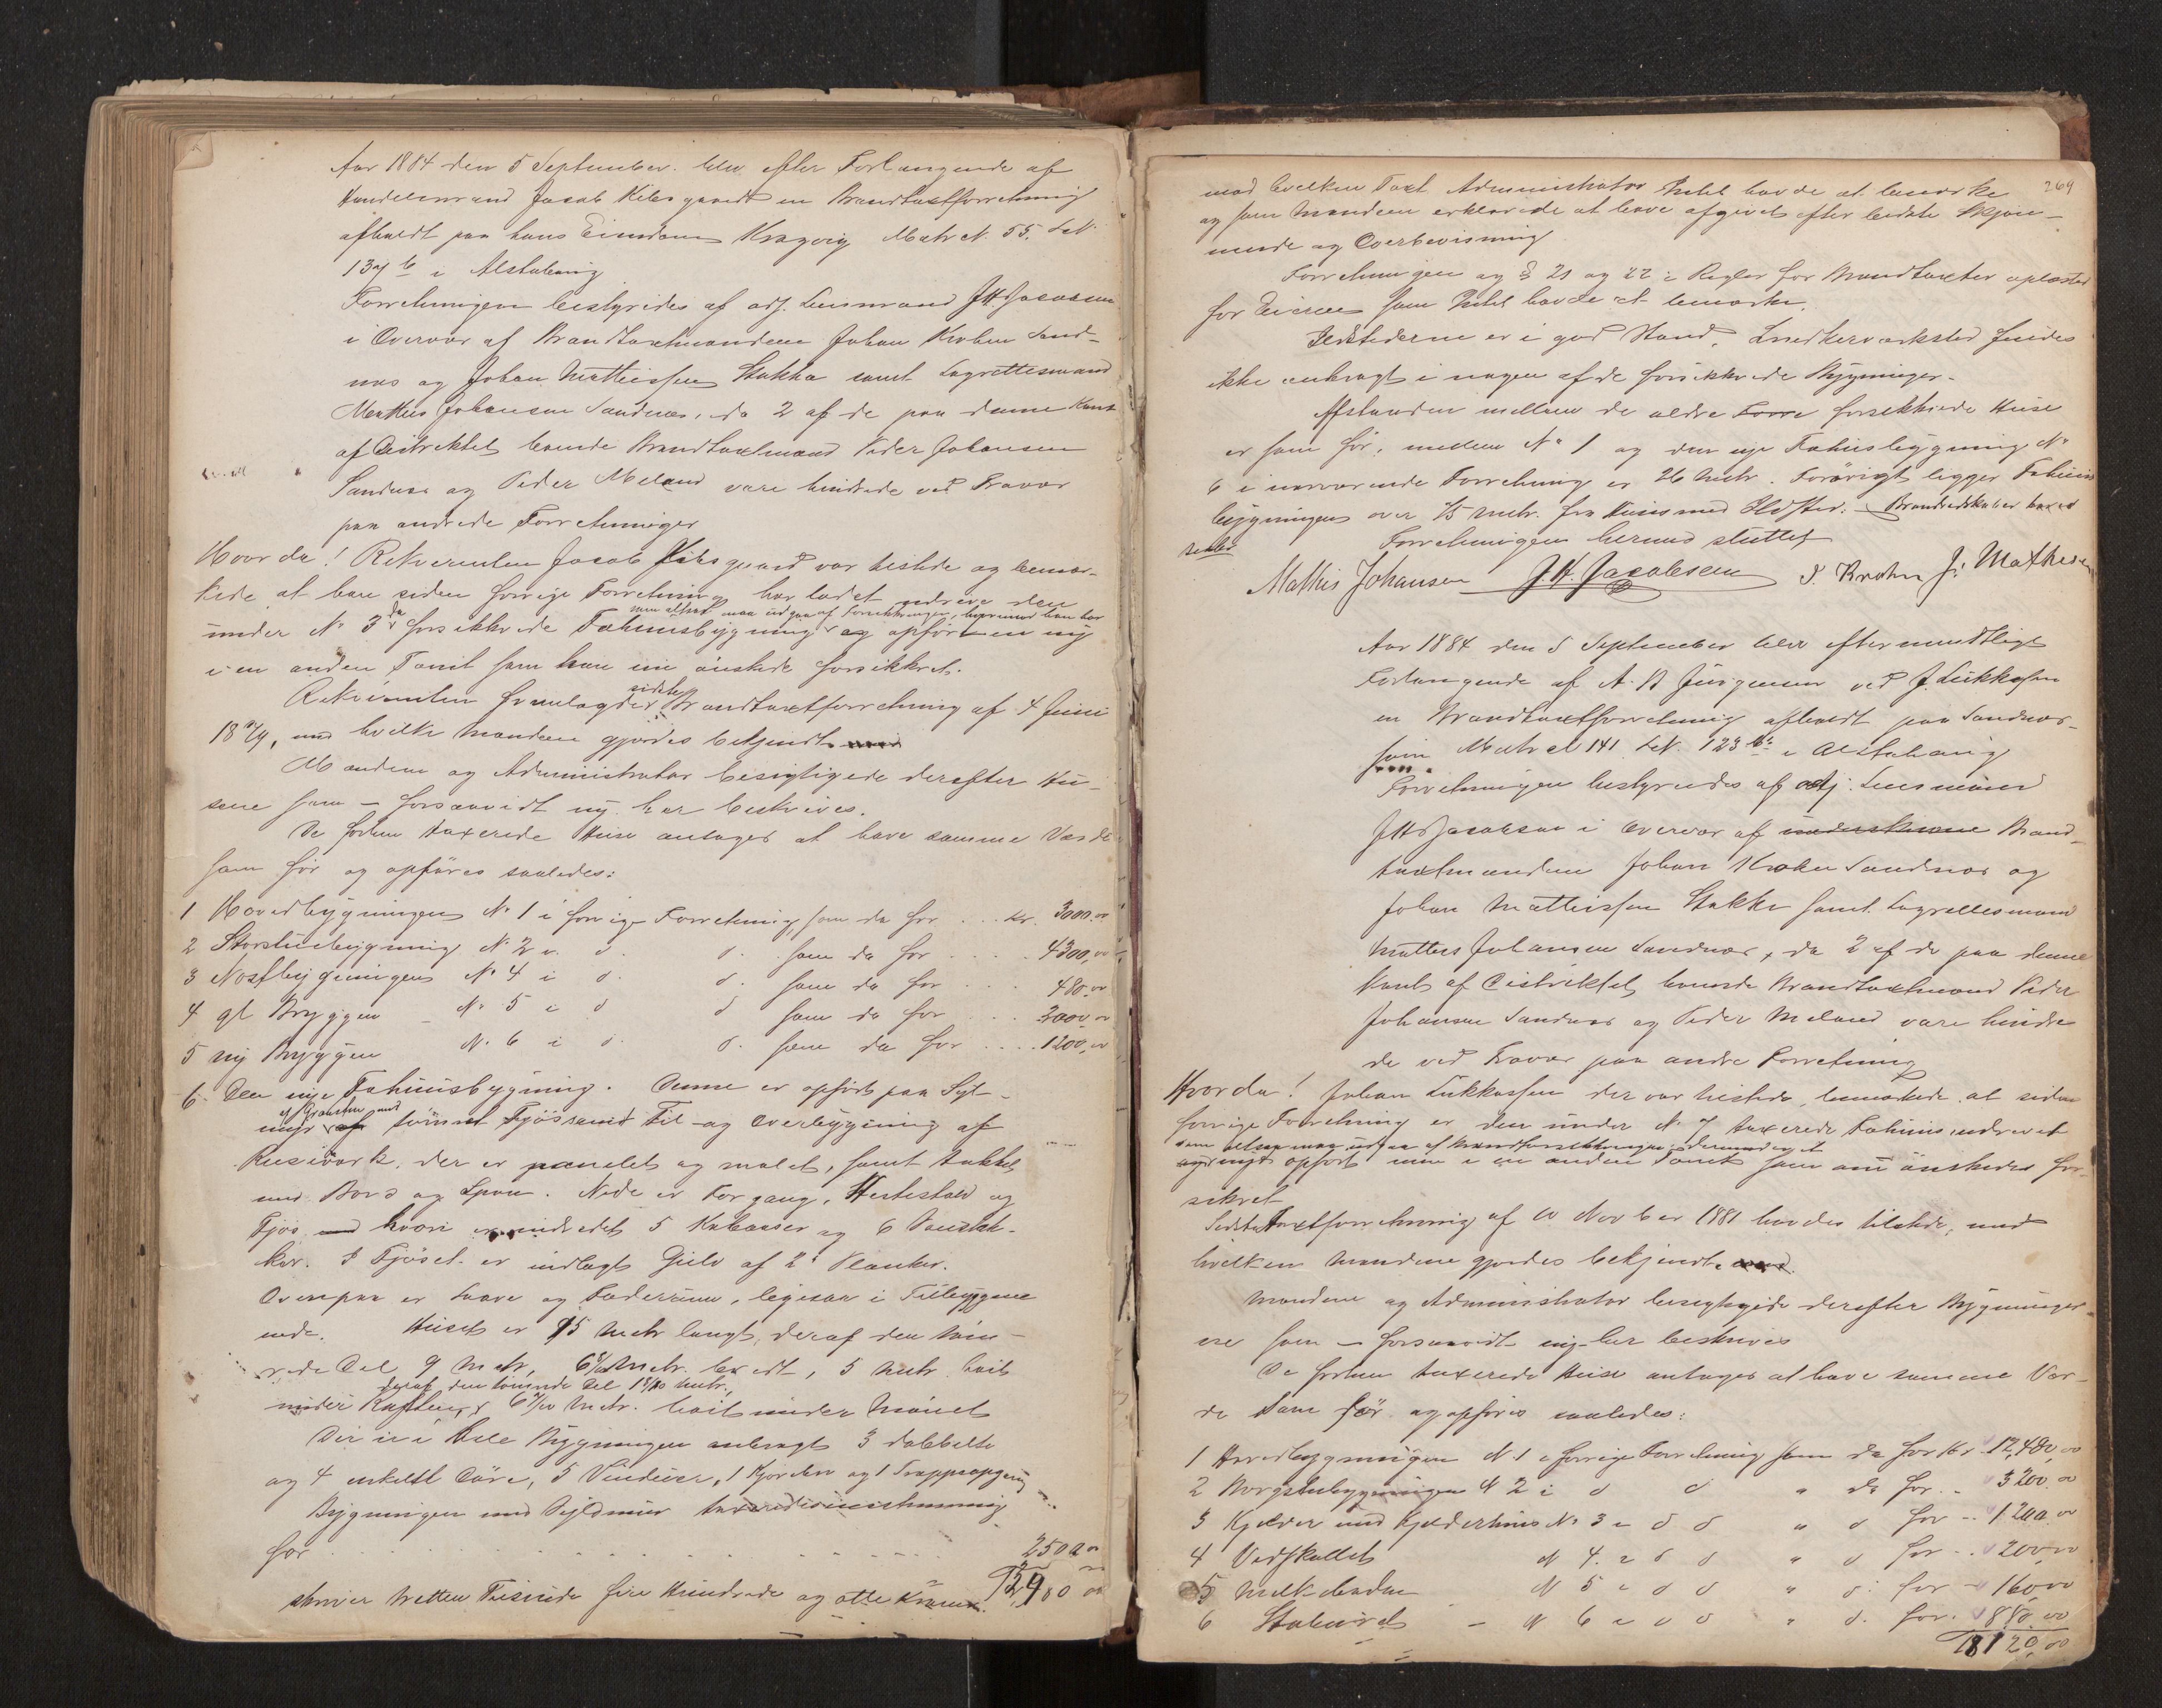 Aar 1884 den 5 September blev efter Forlangende af
Handelsmand Jacob Kilsgaard en Brandtaxtforretning
afholdt paa hans Eiendom Krogvig Matr N. 55. LN
134 b i Alstahaug
Forretningen bestyredes af adj. Lensmand J H Jacobsen
i Overvær af Brandtaxtmændene Johan Krohn Sand-
nes og Johan Mathiessen Stokka samt Lagrettesmand
Mathis Johansen Sandnes, da 2 af de paa denne Kant
af Distriktet boende Brandtaxtmænd Peder Johansen
Sandnes og Peder Meland vare hindrede ved Fravær
paa andre Forretninger
Hvorda! Rekvirenten Jacob Kilsgaard var tilstede og bemær-
kede at han siden forrige Forretning har ladet nedrive den
som altsaa maa udgaa af Forsikringen, hvorimod han har
under N. 3 da forsikkrede Fæhusbygning og opført en ny
i en anden Tomt som han nu ønskede forsikkret.
Rekvirenten fremlagde sidste Brandtaxtforretning af 4 Juni
18, med hvilke Mændene gjordes bekjendt
Mændene og Administrator besigtigede derefter Hu-
sene som – forsaavidt ny her beskrives.
De forhen taxerede Huse antages at have samme Værdi
som før og opføres saaledes:
1 Hovedbygningen N. 1 i forrige Forretning, som da for .... Kr. 3000,00
2 Storstuebygning N. 2 i d. d. som da for .... 4300,00
3 Nostbygningen N. 4 i d. d. som da for .... 480,00
4 gl Bryggen N. 5 i d d som da for .... 2000,00
5 ny Bryggen N. 6 i d. d. som da for .... 1200,00
6. Den nye Fæhusbygning. Denne er opført paa Syl-
af Graasten med
mur tømret Fjøs samt Til- og Overbygning af
Reisværk, der er panelet og malet, samt tækket
med Bord og Spon. Nede er Forgang, Hestestald og
Fjøs hvori er indredet 5 Kobaaser og 6
. I Fjøset er indlagt Gulv af 2" Planker.
Ovenpaa er Laave og Foderrum, ligesaa i Tilbyggene
nede. Huset er 15 Metr langt, deraf den tøm-
rede Del 9 Metr, 6 Metr. bredt, 5 Metr høit
deraf den tømrede Del 1 Metr.
under Raften, 6 Metr. høit under Mønet
Der er i hele Bygningen anbragt 3 dobbelte
og 4 enkelte Døre, 5 Vinduer, 1 Kjøredør og 1 Trappeopgang
Bygningen med Syldmur taxeredes
for .... 2500,00
skriver tretten Tusinde fire Hundrede og otte Kroner. 13,480,00
269
mod hvilken Taxt Administrator Intet havde at bemærke
og som Mændene erklærede at have afgivet efter bedste Skjøn-
nende og Overbevisning
Forretningen og § 21 og 22 i Regler for Brandtaxter oplæstes
for Eieren som Intet havde at bemærke.
Ildstederne er i god Stand, Snedkerværksted findes
ikke anbragt i nogen af de forsikkrede Bygninger.
Afstanden mellem de ældre forsikkrede Huse
er som før, mellem N. 1 og den nye Fæhusbygning N.
6 i nærværende Forretning er 26 Metr. Forøvrigt ligger Fæhus
bygningen over 15 Metr. fra Huse med Ildsted. – Brandredskaber
Forretningen hermed sluttet
Mathis Johansen J. H. Jacobsen J. Krohn J. Mathiesen
Aar 1884 den 5 September blev efter mundtlige
Forlangende af A. B Jürgensen ved J. Lukkassen
en Brandtaxtforretning afholdt paa Sandnes-
Matr N 141 LN. 123 i Alstahaug
Forretningen bestyredes af adj. Lensmand
J H Jacobsen i Overvær af Brand-
taxtmændene Johan Krohn Sandnes og
Johan Mathiessen Stokka samt Lagrettesmand
Mathis Johansen Sandnes, da 2 af de paa denne
Kant af Distriktet boende Brandtaxtmænd Peder
Johansen Sandnes og Peder Meland vare hindre
de ved Fravær paa andre Forretning
Hvorda! Johan Lukkassen der var tilstede, bemærkede at siden
forrige Forretning er den under N. 7 taxerede Fæhus nedrevet
som altsaa maa udgaa af Brandforsikkringen, derimod er et
nyt opført nu i en anden Tomt som nu ønskedes for-
sikret
Sidste Taxtforretning af 10 Novber 1881 havdes tilstede, med
hvilken Mændene gjordes bekjendt.
Mændene og Administrator besigtigede derefter Bygninger-
ne som – forsaavidt ny – her beskrives
De forhen taxerede Huse antages at have samme Vær-
de som før og opføres saaledes:
1 Hovedbygningen N 1 i forrige Forretning som da for Kr. 12,480,00
2 Borgstubygningen N 2 i d d " da for .. 3200,00
3 Kjelder med Kjelderhus N. 3 i d d " d for .. 1200,00
4 Vedskallet N 4. i d d " d for .. 200,00
5 Melkeboden N 5 i d d " d: for – 160,00
6 Stabured – N 6 i d d " d. for. 880,00
18120,00